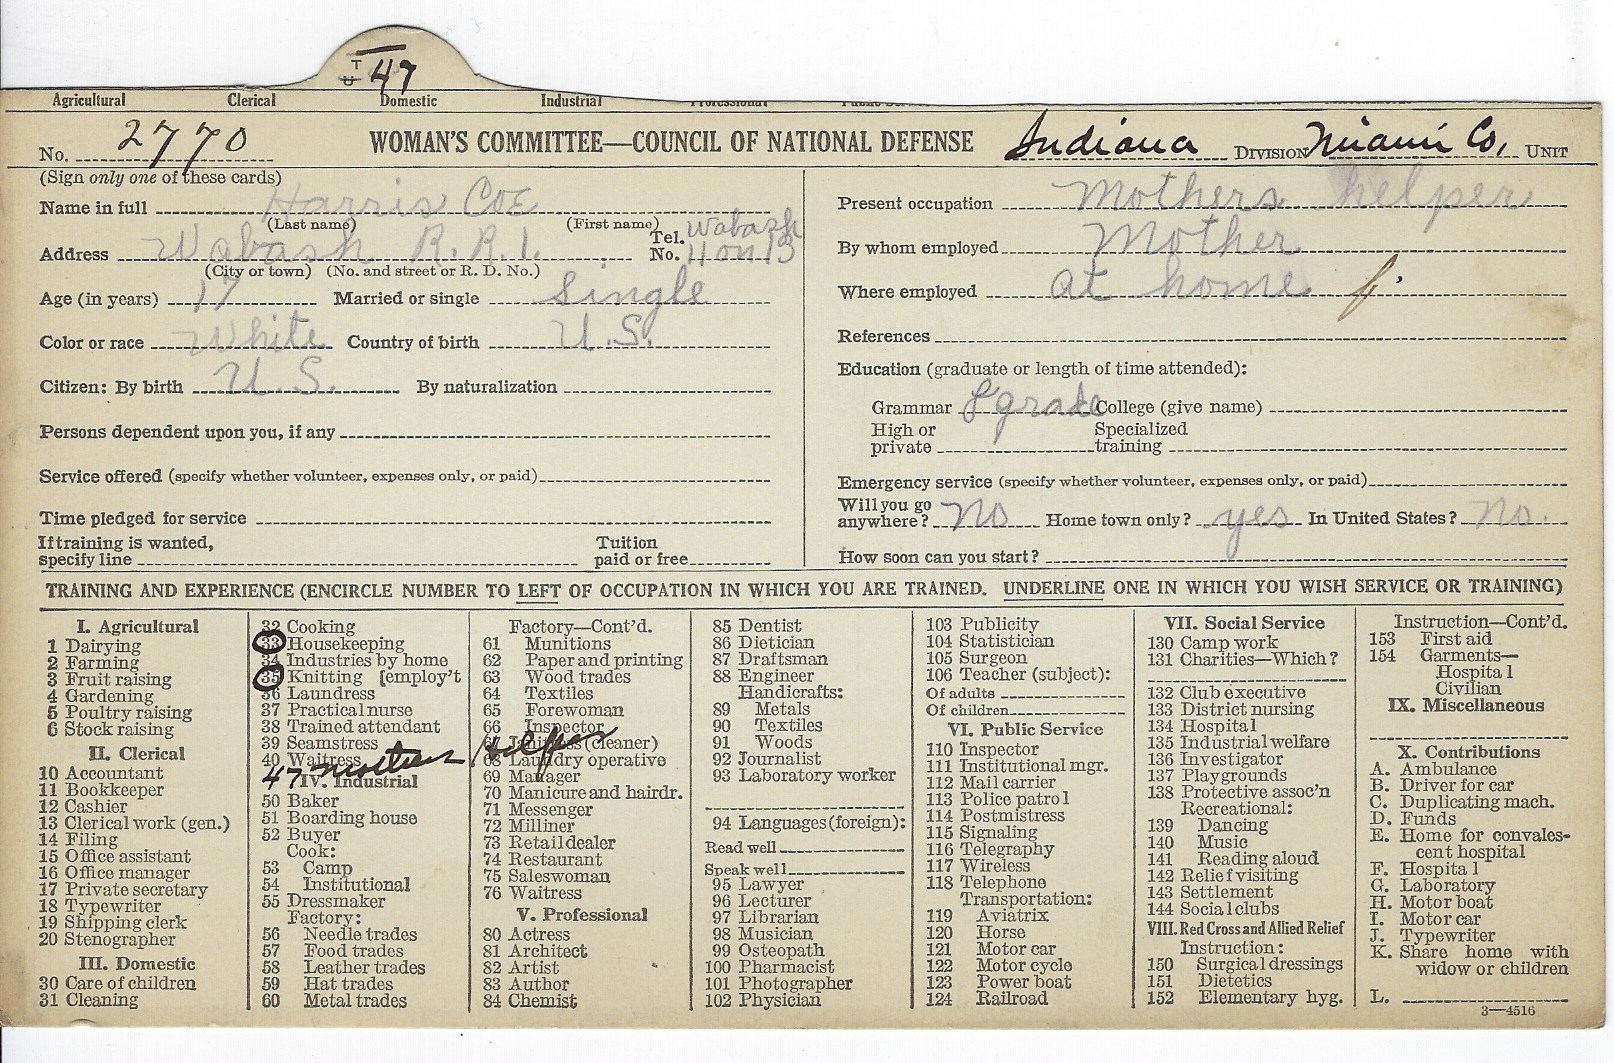 T
U 47
Agricultural Clerical Domestic Industrial Professional
No. 2770 WOMAN'S COMMITTEE—COUNCIL OF NATIONAL DEFENSE Indiana DIVISION Miami Co. UNIT
(Sign only one of these cards)
Name in full Harris Coe
(Last name) (First name)
Address Wabash R.R.1. Tel. No. Wabash 11 on 13
(City or town) (No. and street or R. D. No.)
Age (in years) 17 Married or single Single
Color or race White Country of birth U.S.
Citizen: By birth U.S. By naturalization
Persons dependent upon you, if any
Service offered (specify whether volunteer, expenses only, or paid)
Time pledged for service
If training is wanted, specify line Tuition paid or free
Present occupation Mothers helper
By whom employed Mother
Where employed at home
References
Education (graduate or length of time attended):
Grammar 8 grade College (give name)
High or private Specialized training
Emergency service (specify whether volunteer, expenses only, or paid)
Will you go anywhere? No Home town only? yes In United States? No.
How soon can you start?
TRAINING AND EXPERIENCE (ENCIRCLE NUMBER TO LEFT OF OCCUPATION IN WHICH YOU ARE TRAINED. UNDERLINE ONE IN WHICH YOU WISH SERVICE OR TRAINING)
I. Agricultural
1 Dairying
2 Farming
3 Fruit raising
4 Gardening
5 Poultry raising
6 Stock raising
II. Clerical
10 Accountant
11 Bookkeeper
12 Cashier
13 Clerical work (gen.)
14 Filing
15 Office assistant
16 Office manager
17 Private secretary
18 Typewriter
19 Shipping clerk
20 Stenographer
III. Domestic
30 Care of children
31 Cleaning
32 Cooking
33 Housekeeping
34 Industries by home
35 Knitting [employ't
36 Laundress
37 Practical nurse
38 Trained attendant
39 Seamstress
40 Waitress
47 mother Helper
IV. Industrial
50 Baker
51 Boarding house
52 Buyer
Cook:
53 Camp
54 Institutional
55 Dressmaker
Factory:
56 Needle trades
57 Food trades
58 Leather trades
59 Hat trades
60 Metal trades
Factory—Cont'd.
61 Munitions
62 Paper and printing
63 Wood trades
64 Textiles
65 Forewoman
66 Inspector
67 Janitress (cleaner)
68 Laundry operative
69 Manager
70 Manicure and hairdr.
71 Messenger
72 Milliner
73 Retail dealer
74 Restaurant
75 Saleswoman
76 Waitress
V. Professional
80 Actress
81 Architect
82 Artist
83 Author
84 Chemist
85 Dentist
86 Dietician
87 Draftsman
88 Engineer
Handicrafts:
89 Metals
90 Textiles
91 Woods
92 Journalist
93 Laboratory worker
94 Languages (foreign):
Read well
Speak well
95 Lawyer
96 Lecturer
97 Librarian
98 Musician
99 Osteopath
100 Pharmacist
101 Photographer
102 Physician
103 Publicity
104 Statistician
105 Surgeon
106 Teacher (subject):
Of adults
Of children
VI. Public Service
110 Inspector
111 Institutional mgr.
112 Mail carrier
113 Police patrol
114 Postmistress
115 Signaling
116 Telegraphy
117 Wireless
118 Telephone
Transportation:
119 Aviatrix
120 Horse
121 Motor car
122 Motor cycle
123 Power boat
124 Railroad
VII. Social Service
130 Camp work
131 Charities—Which?
132 Club executive
133 District nursing
134 Hospital
135 Industrial welfare
136 Investigator
137 Playgrounds
138 Protective assoc'n
Recreational:
139 Dancing
140 Music
141 Reading aloud
142 Relief visiting
143 Settlement
144 Social clubs
VIII. Red Cross and Allied Relief
Instruction:
150 Surgical dressings
151 Dietetics
152 Elementary hyg.
Instruction—Cont'd.
153 First aid
154 Garments—
Hospital
Civilian
IX. Miscellaneous
X. Contributions
A. Ambulance
B. Driver for car
C. Duplicating mach.
D. Funds
E. Home for convales-
cent hospital
F. Hospital
G. Laboratory
H. Motor boat
I. Motor car
J. Typewriter
K. Share home with
widow or children
L.
3—4516